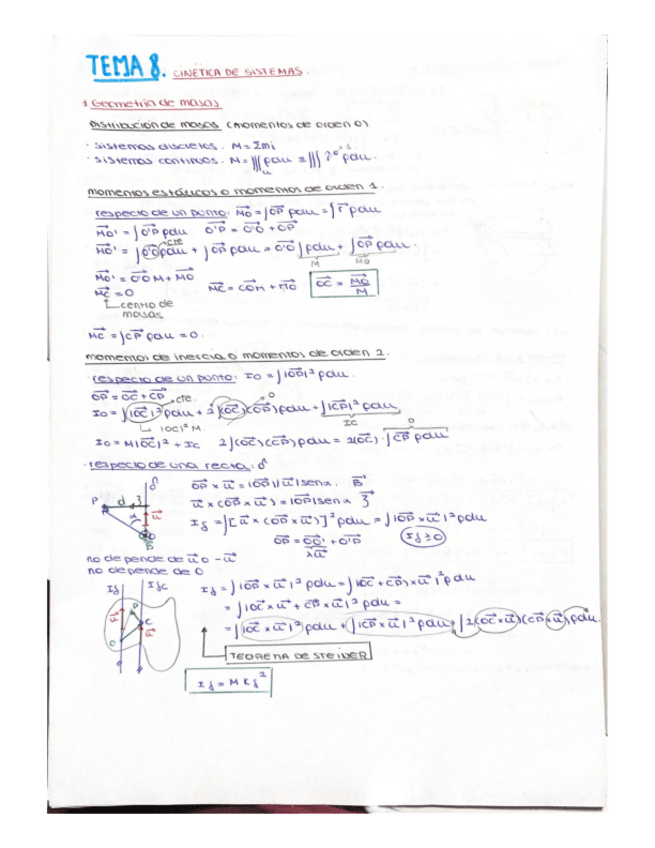 TEMA 8. CINÉTICA DE SISTEMAS.
1 Geometría de masas
Distribución de masas (momentos de orden 0)
· sistemas discretos. M = Σmi
· sistemas continuos. M = ∭u ρdu = ∭ r⁰ ρdu.
momentos estáticos o momentos de orden 1.
respecto de un punto: Mo = ∫OP ρdu = ∫r ρdu
Mo' = ∫O'P ρdu O'P = O'O + OP
Mo' = ∫O'O ρdu + ∫OP ρdu = O'O ∫ρdu + ∫OP ρdu.
cte M Mo
Mo' = O'O M + Mo
Mc = 0 Mc = CO M + Mo OC = Mo/M
centro de
masas
Mc = ∫CP ρdu = 0.
momentos de inercia o momentos de orden 2.
· respecto de un punto: Io = ∫|OP|² ρdu.
OP = OC + CP cte. 0
Io = ∫|OC|² ρdu + 2∫(OC)(CP) ρdu + ∫|CP|² ρdu
|OC|² M. Ic 0
Io = M|OC|² + Ic 2∫(OC)(CP) ρdu = 2(OC)·∫CP ρdu
· respecto de una recta: δ
OP × u = |OP||u| sen α.
u × (OP × u) = |OP| sen α
Iδ = ∫[u × (OP × u)]² ρdu = ∫|OP × u|² ρdu
OP = OO' + O'P Iδ ≥ 0
no depende de u o -u
no depende de O
Iδ IδC Iδ = ∫|OP × u|² ρdu = ∫|(OC + CP) × u|² ρdu
= ∫|OC × u + CP × u|² ρdu =
= ∫|OC × u|² ρdu + ∫|CP × u|² ρdu + ∫2(OC × u)(CP × u) ρdu.
TEOREMA DE STEINER
Iδ = M Kδ²